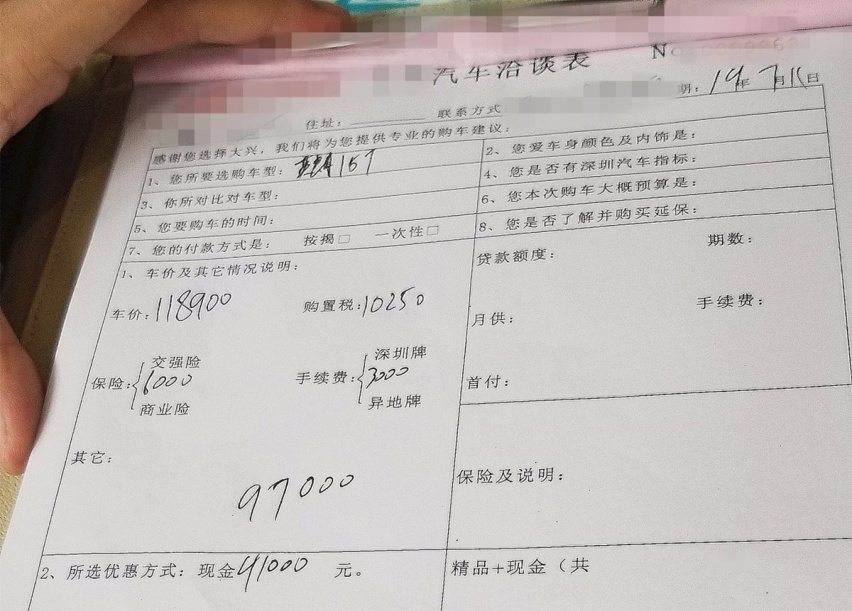 汽车洽谈表 No
住址： 联系方式 期：19年7月11日
感谢您选择大兴，我们将为您提供专业的购车建议：
1、您所要选购车型： 15T
2、您爱车身颜色及内饰是：
3、你所对比对车型：
4、您是否有深圳汽车指标：
5、您要购车的时间：
6、您本次购车大概预算是：
7、您的付款方式是： 按揭□ 一次性□
8、您是否了解并购买延保：
1、车价及其它情况说明：
贷款额度： 期数：
车价：118900 购置税：10250
月供： 手续费：
保险： 交强险 6000 商业险
手续费： 深圳牌 3000 异地牌
首付：
其它：
97000
保险及说明：
2、所选优惠方式：现金41000 元。
精品+现金（共